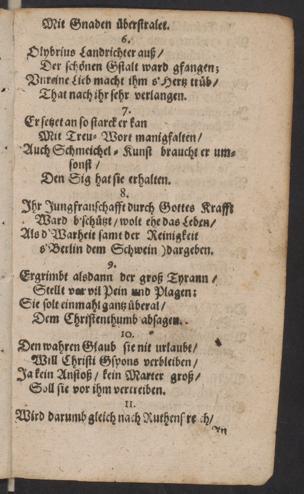 Mit Gnaden überstralet.
6.
Olybrius Landrichter auß/
Der schönen Gstalt ward gfangen;
Vnreine Lieb macht ihm s'Hertz trüb/
That nach ihr sehr verlangen.
7.
Er setzet an so starck er kan
Mit Treu- Wort manigfalten/
Auch Schmeichel- Kunst braucht er um-
sonst/
Den Sig hat sie erhalten.
8.
Ihr Jungfrauschafft durch Gottes Krafft
Ward b'schützt/ wolt ehe das Leben/
Als d'Warheit samt der Reinigkeit
s'Berlin dem Schwein) dargeben.
9.
Ergrimbt alsdann der groß Tyrann/
Stellt vor vil Pein und Plagen;
Sie solt einmahl gantz überal/
Dem Christenthumb absagen.
10.
Den wahren Glaub sie nit urlaubt/
Will Christi Gspons verbleiben/
Ja kein Anstoß/ kein Marter groß/
Soll sie vor ihm vertreiben.
11.
Wird darumb gleich nach Ruthenstreich/